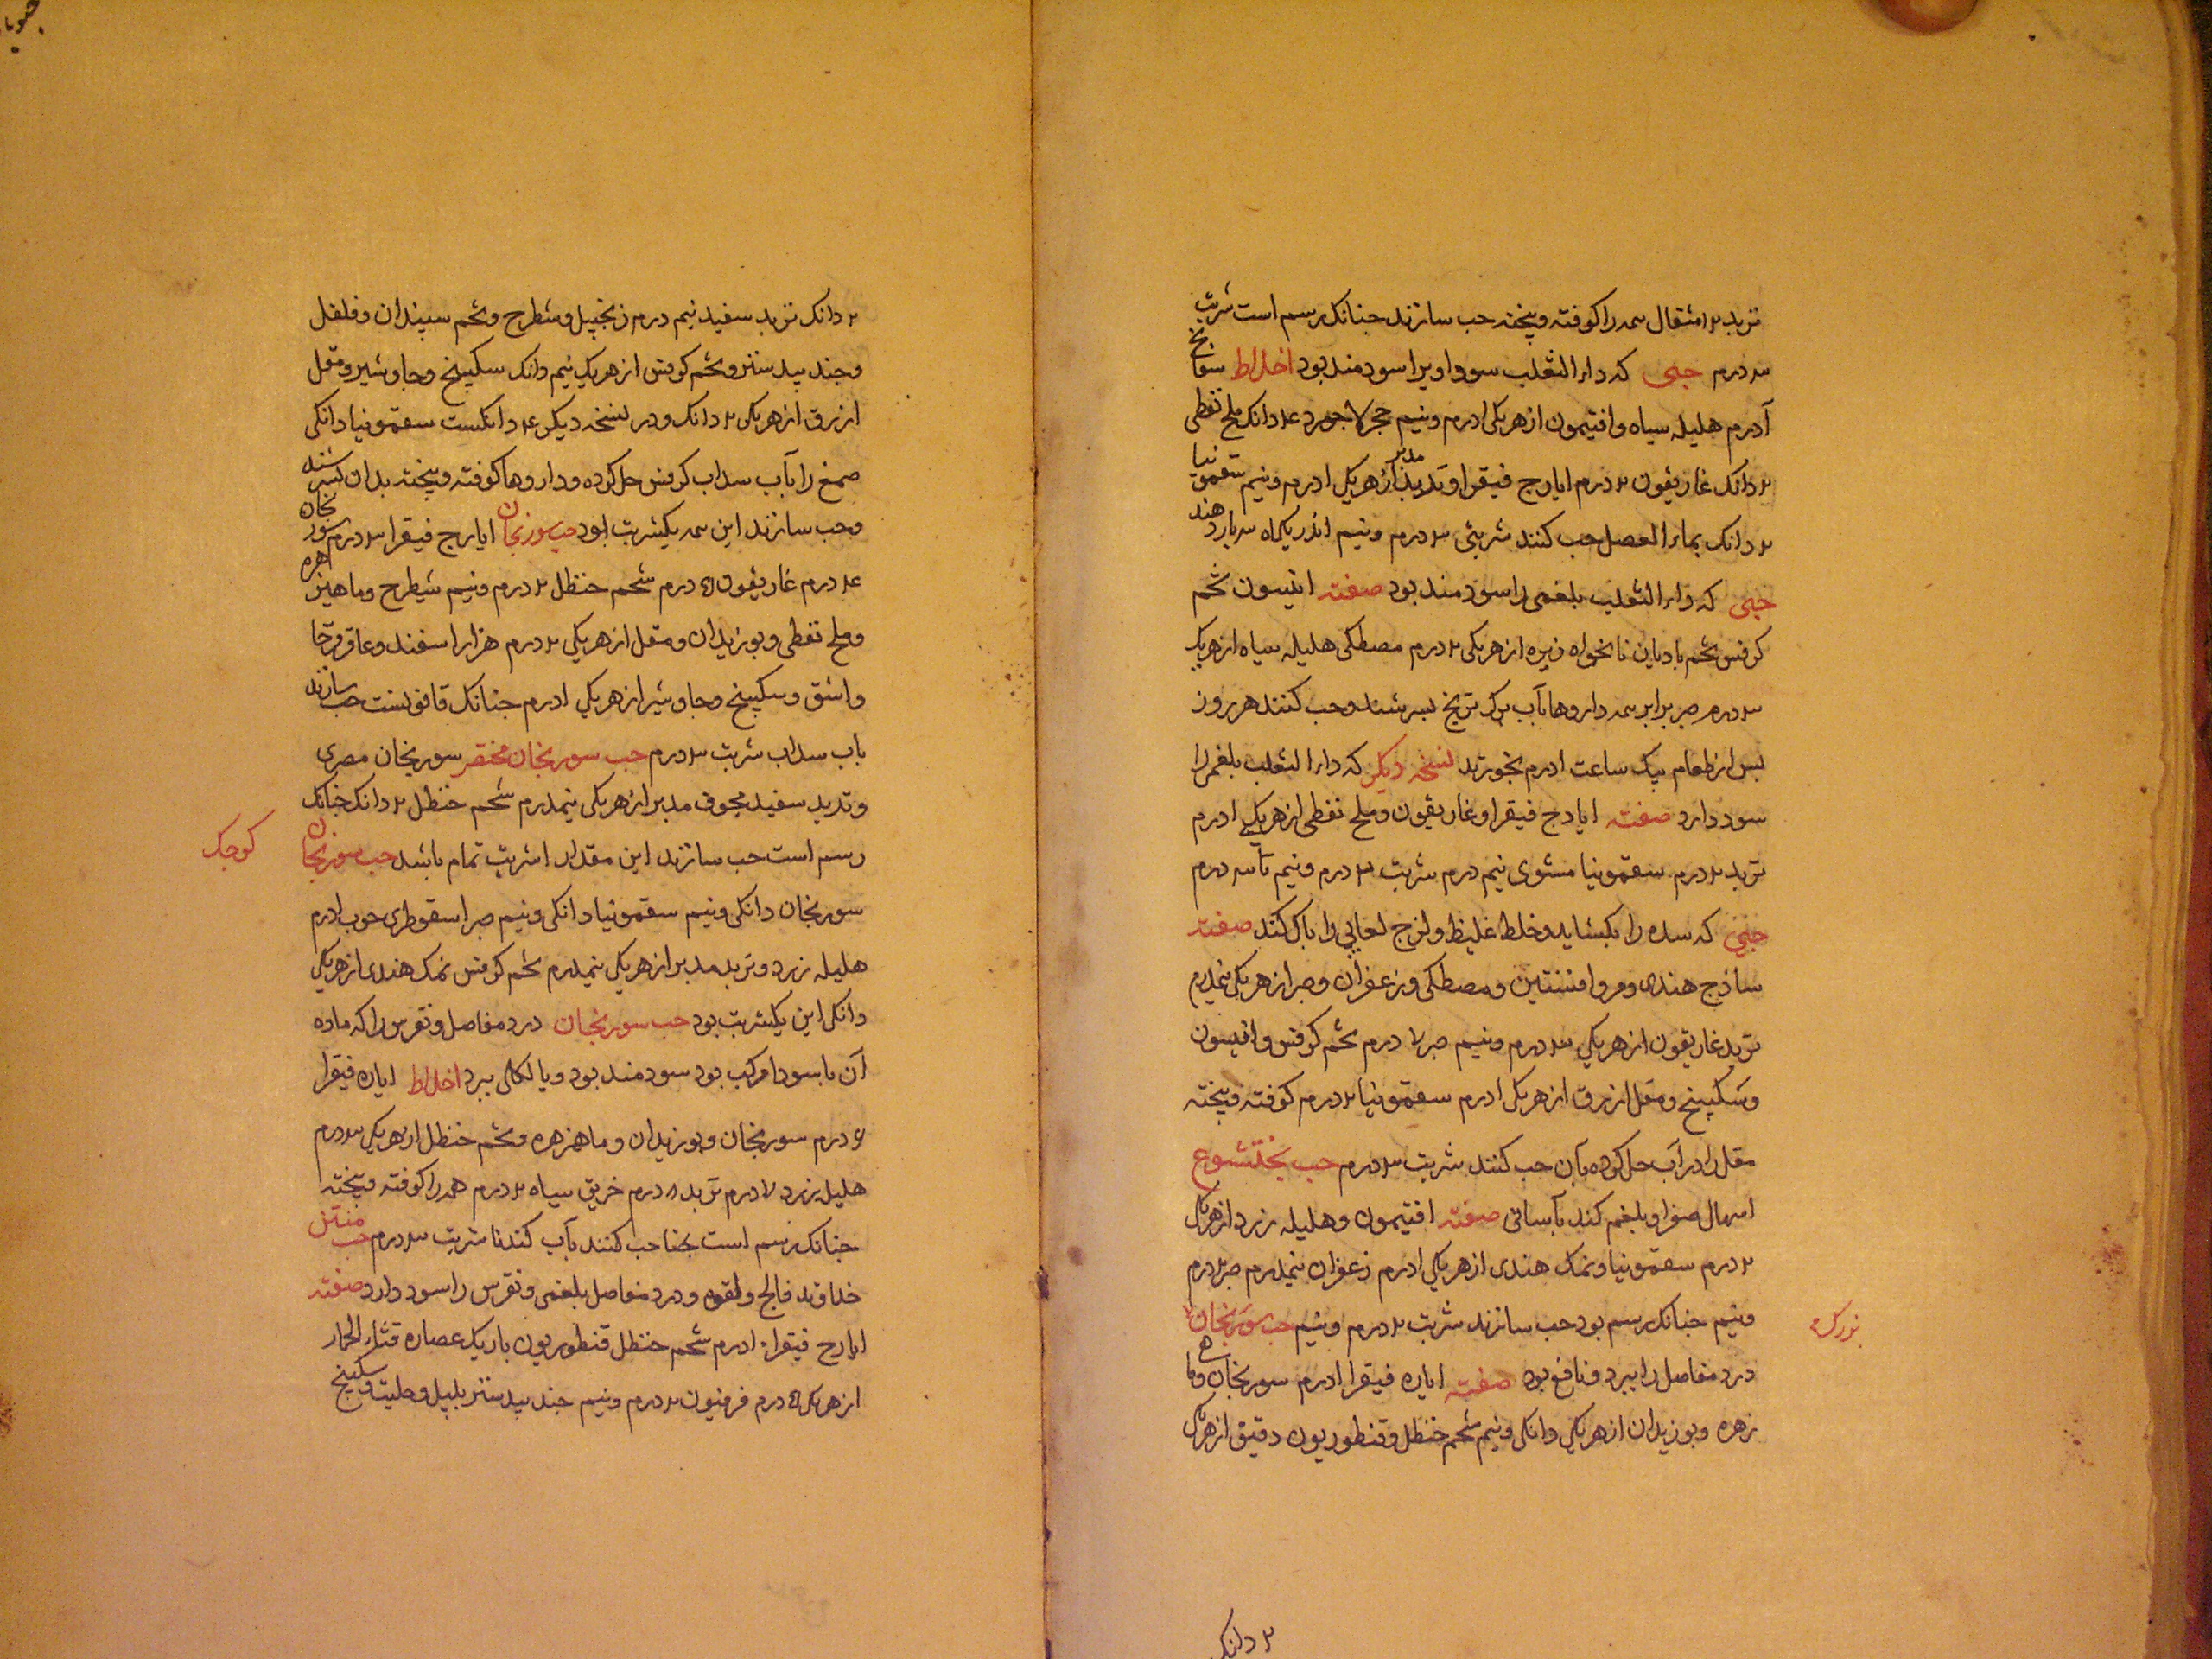 تربد ۲۰ مثقال سمه را کوفته و بیخته حب سازند جنانک رسم است شربت
۳ درم حبی که داء الثعلب سوداویرا سودمند بود اخلاط
آدرم هلیله سیاه و افتیمون از هریکی ادرم و نیم حجر لاجورد ۴ دانک ملح نفطی
۲ دانک غاریقون ۲ درم ایارج فیقرا و تربد مدبر از هریکی ادرم و نیم سقمونیا
۲ دانک بماء العصل حب کنند شربتی ۳ درم و نیم اندر یکماه ۳ بار دهند
حبی که داء الثعلب بلغمی را سودمند بود صفته انیسون تخم
کرفس تخم بادیان نانخواه زیره از هریکی ۲ درم مصطکی هلیله سیاه از هریک
۳ درم صبر برابر سمه داروها بآب برک ترنج بسرشند و حب کنند هر روز
بس از طعام بیک ساعت ادرم بخورند نسخه دیکر که داء الثعلب بلغمی را
سود دارد صفته ایارج فیقرا و غاریقون و ملح نفطی از هریکی ادرم
تربد ۲ درم سقمونیا مشوی نیم درم شربت ۲ درم و نیم تا ۳ درم
حبی که سده را بکشاید و خلط غلیظ و لزج لعابی را باک کند صفته
ساذج هندی و مر و افسنتین و مصطکی و زعفران و صبر از هریکی نیمدرم
تربد غاریقون از هریکی ۳ درم و نیم صبر ۷ درم تخم کرفس و انیسون
و سکبینج و مقل ازرق از هریکی ادرم سقمونیا ۲ درم کوفته و بیخته
مقل را در آب حل کرده بآن حب کنند شربت ۳ درم حب بختشوع
اسهال صفرا و بلغم کند بآسانی صفته افتیمون و هلیله زرد از هریک
۲ درم سقمونیا و نمک هندی از هریکی ادرم زعفران نیمدرم صبر ۲ درم
و نیم جنانک رسم بود حب سازند شربت ۲ درم و نیم حب سورنجان بزرک
درد مفاصل را ببرد و نافع بود صفته ایاره فیقرا ادرم سورنجان و ماه
زهره و بوزیدان از هریکی دانکی و نیم شحم حنظل و قنطوریون دقیق از هریک
۲ دانک
۲ دانک تربد سفید نیم درم زنجبیل و شطرج و تخم سبندان و فلفل
و جند بیدستر و تخم کرفس از هریک نیم دانک سکبینج و جاوشیر و مقل
ازرق از هریکی ۲ دانک و در نسخه دیکر ۴ دانکست سقمونیا دانکی
صمغ را بآب سداب کرفس حل کرده و داروها کوفته و بیخته بدان بسرشند
و حب سازند این سمه یکشربت بود حب سورنجان ایارج فیقرا ۳ درم سورنجان
۴ درم غاریقون ۵ درم شحم حنظل ۲ درم و نیم شیطرج و ماهیزهره
و ملح نفطی و بوزیدان و مقل از هریکی ۲ درم هزار اسفند و عاقرقرحا
و اشق و سکبینج و جاوشیر از هریکی ادرم جنانک قانونست حب سازند
باب سداب شربت ۳ درم حب سورنجان مختصر سورنجان مصری
و تربد سفید مجوف مدبر از هریکی نیمدرم شحم حنظل ۲ دانک جنانک
رسم است حب سازند این مقدار اشربت تمام باشد حب سورنجان کوجک
سورنجان دانکی و نیم سقمونیا دانکی و نیم صبر اسقوطری خوب ادرم
هلیله زرد و تربد مدبر از هریکی نیمدرم تخم کرفس نمک هندی از هریکی
دانکی این یکشربت بود حب سورنجان درد مفاصل و نقرس را که ماده
آن با سودا مرکب بود سودمند بود و بالکلی ببرد اخلاط ایاره فیقرا
۶ درم سورنجان و بوزیدان و ماهزهره و شحم حنظل از هریکی ۳ درم
هلیله زرد ۷ درم تربد ۸ درم خربق سیاه ۲ درم همه را کوفته و بیخته
جنانک رسم است حب کنند بآب کندنا شربت ۳ درم حب منتن
خداوند فالج و لقوه و درد مفاصل بلغمی و نقرس را سود دارد صفته
ایارج فیقرا ادرم شحم حنظل قنطوریون باریک عصاره قثاء الحمار
از هریک ۵ درم فرفیون ۲ درم و نیم جند بیدستر بلبل و حلتیت و سکبینج